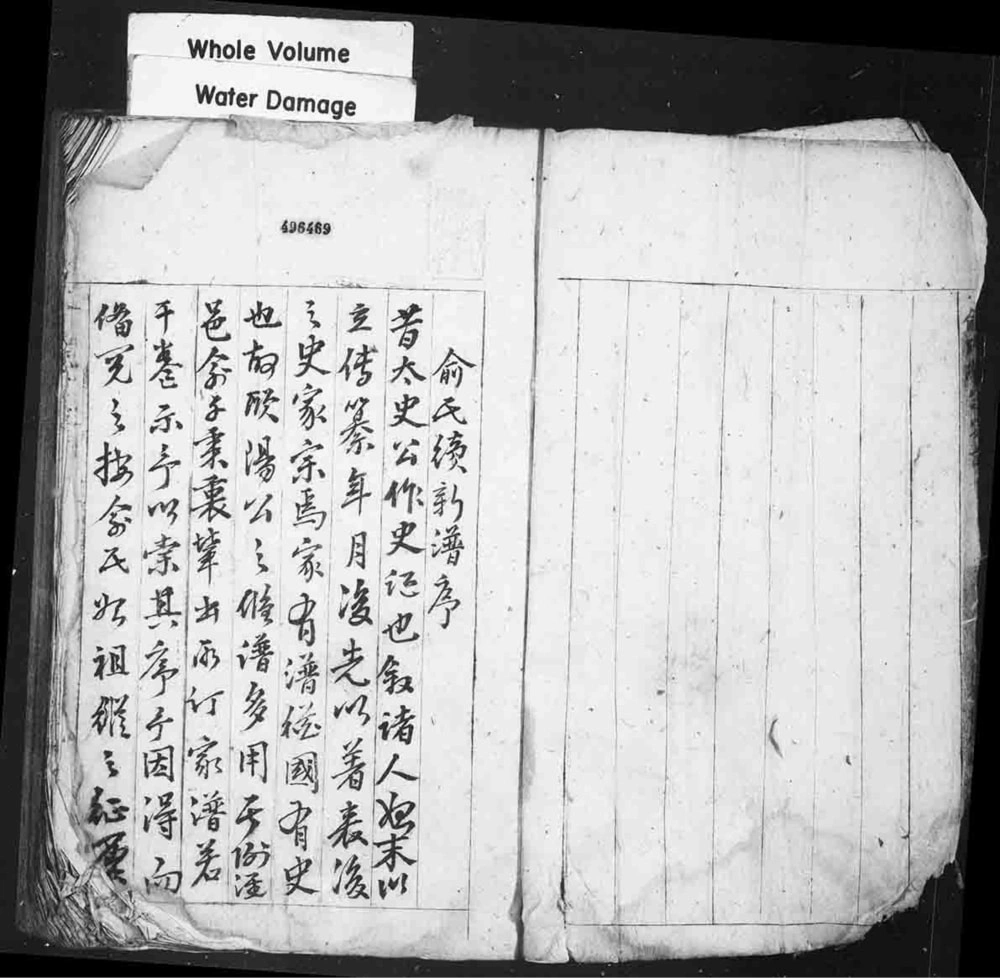 Whole Volume
Water Damage
496469
俞氏續新譜序
昔太史公作史記也叙諸人始末以
立傳纂年月後先以着表後
之史家宗焉家有譜猶國有史
也故歐陽公之脩譜多用其例涇
邑俞子秉衷輩出所訂家譜若
干卷示予以索其序予因得而
備覧之按俞氏始祖縱之征